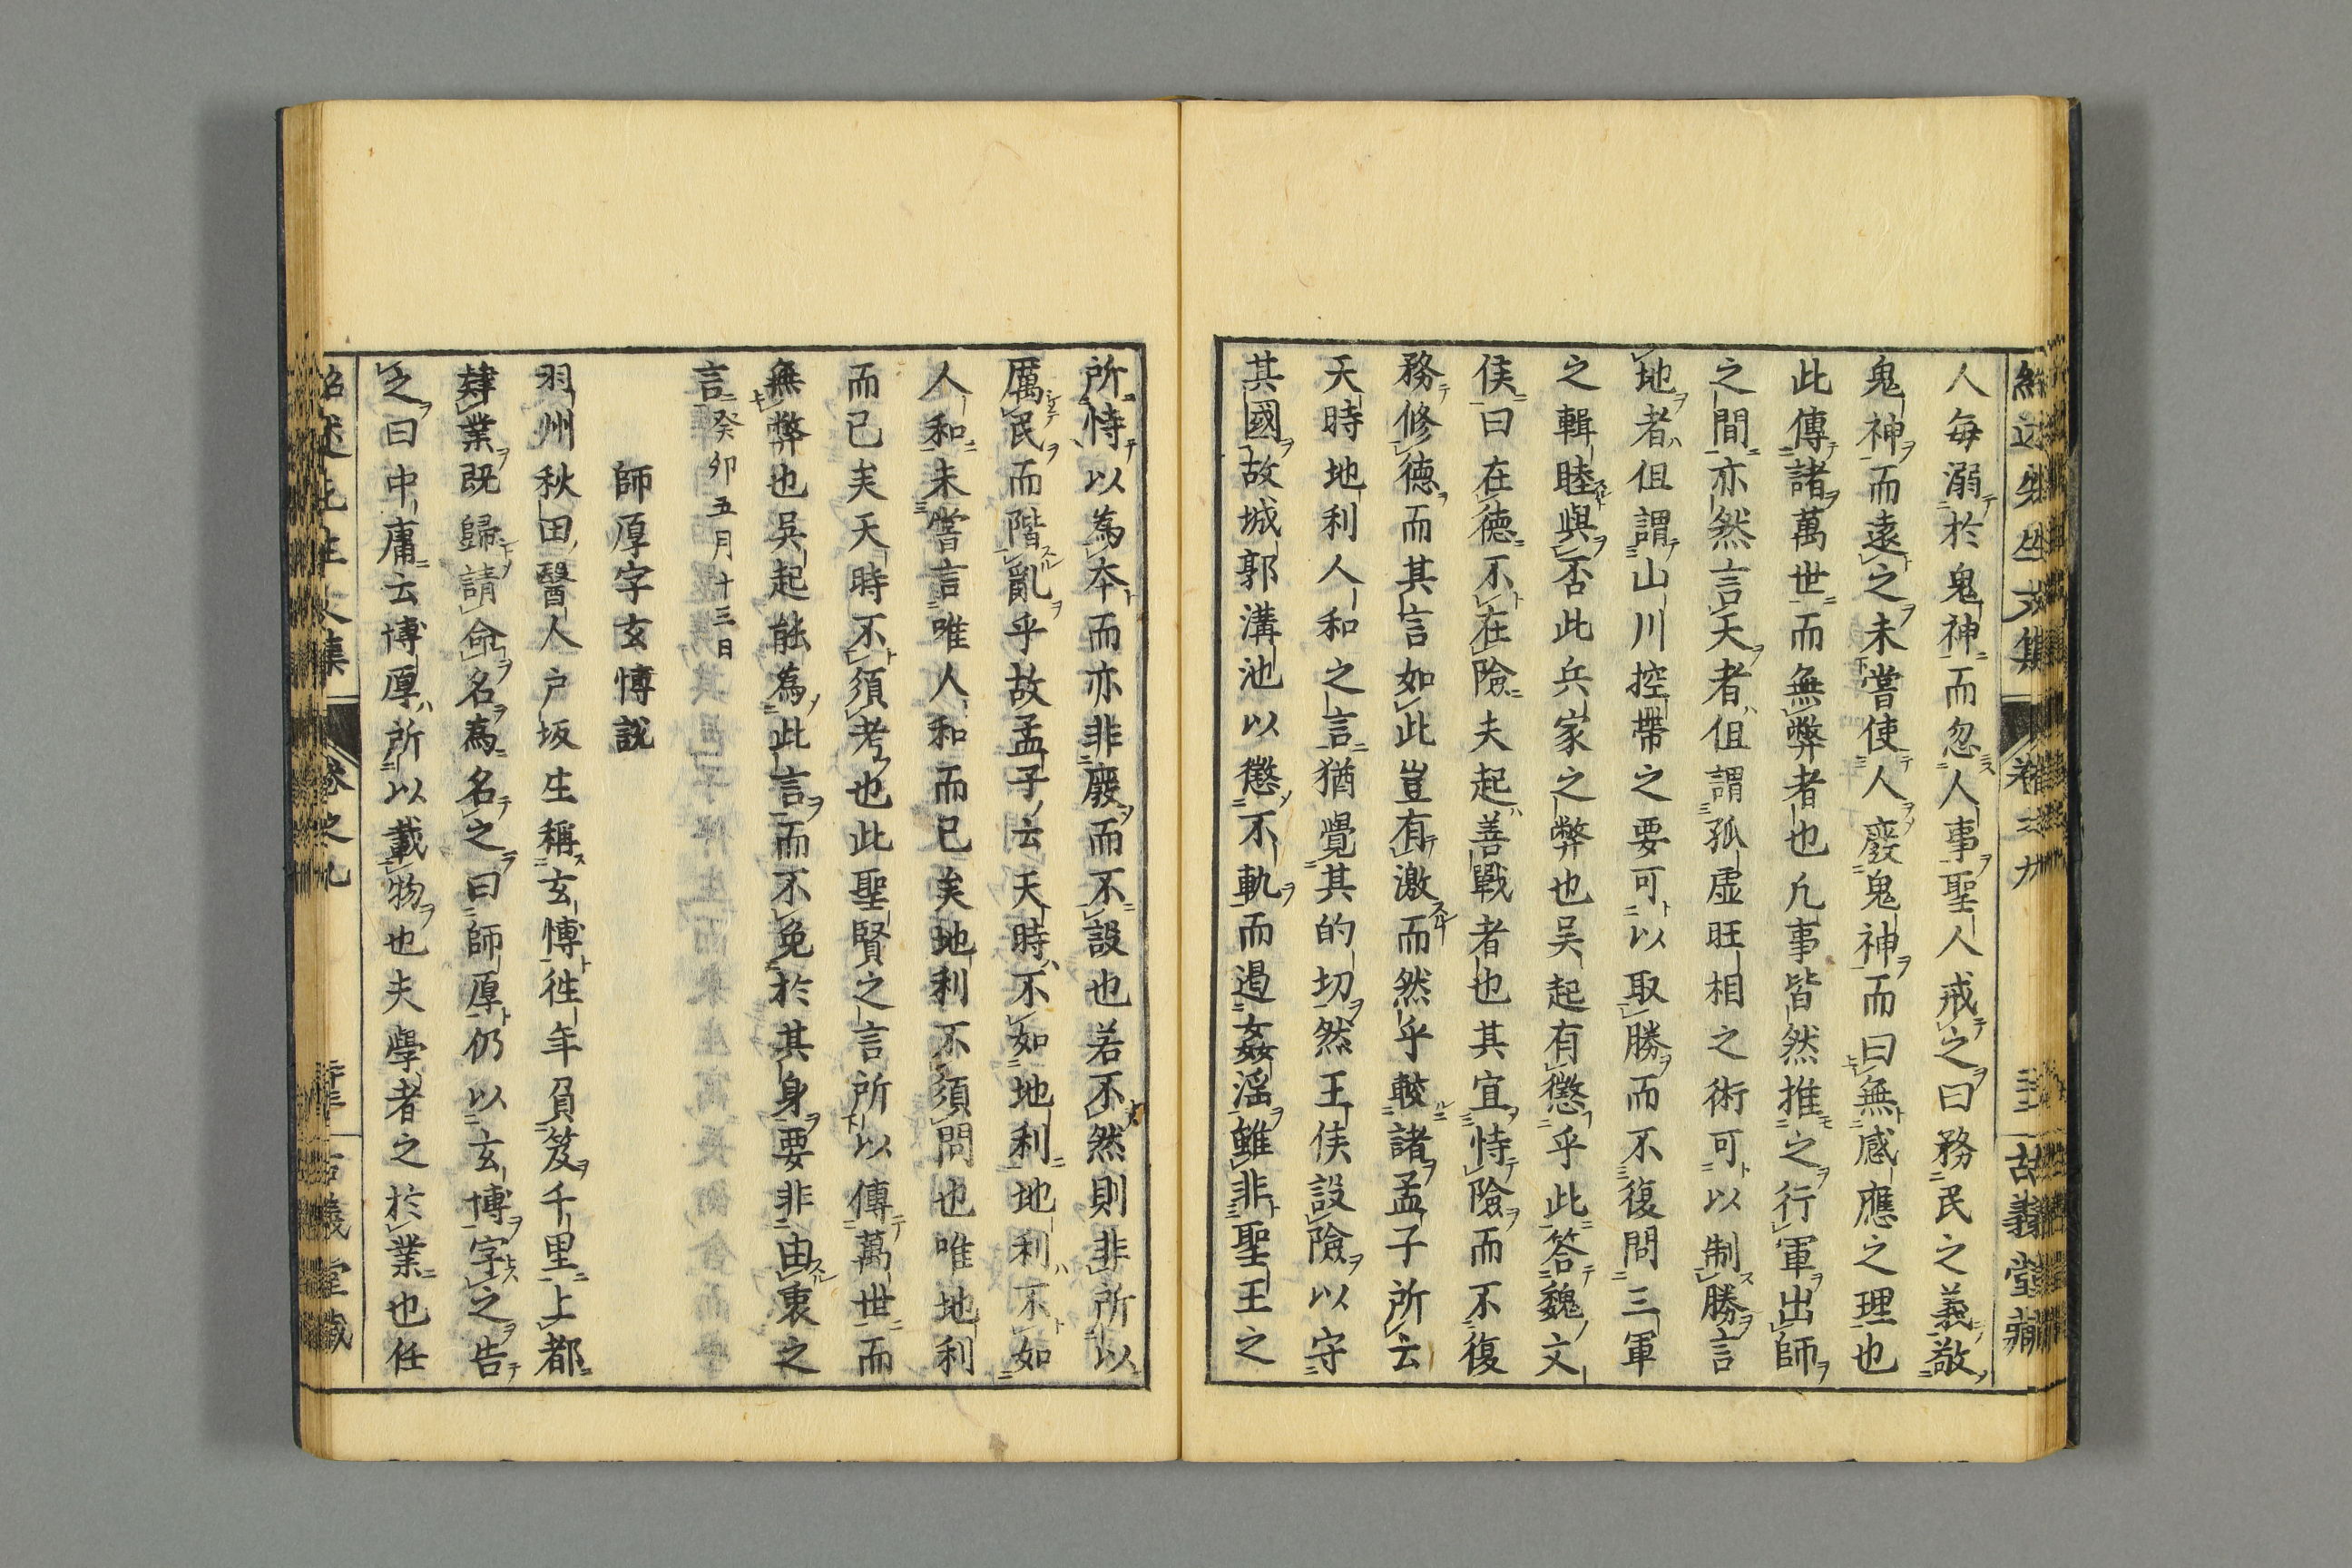 人每溺於鬼神而忽人事聖人戒之曰務民之義敬
鬼神而遠之未嘗使人廢鬼神而曰無感應之理也
此傳諸萬世而無弊者也凡事皆然推之行軍出師
之間亦然言天者但謂孤虛旺相之術可以制勝言
地者但謂山川控帶之要可以取勝而不復問三軍
之輯睦與否此兵家之弊也吳起有懲乎此答魏文
侯曰在德不在險夫起善戰者也其宜恃險而不復
務修德而其言如此豈有激而然乎較諸孟子所云
天時地利人和之言猶覺其的切然王侯設險以守
其國故城郭溝池以懲不軌而遏姦淫雖非聖王之
所恃以為本而亦非廢而不設也若不然則非所以
厲民而階亂乎故孟子云天時不如地利地利不如
人和未嘗言唯人和而已矣地利不須問也唯地利
而已矣天時不須考也此聖賢之言所以傳萬世而
無弊也吳起能為此言而不免於其身要非由衷之
言癸卯五月十三日
師厚字玄博說
羽州秋田醫人戶坂生稱玄博往年負笈千里上都
肄業既歸請命名為名之曰師厚仍以玄博字之告
之曰中庸云博厚所以載物也夫學者之於業也任
紹述先生文集 卷之九 古義堂藏